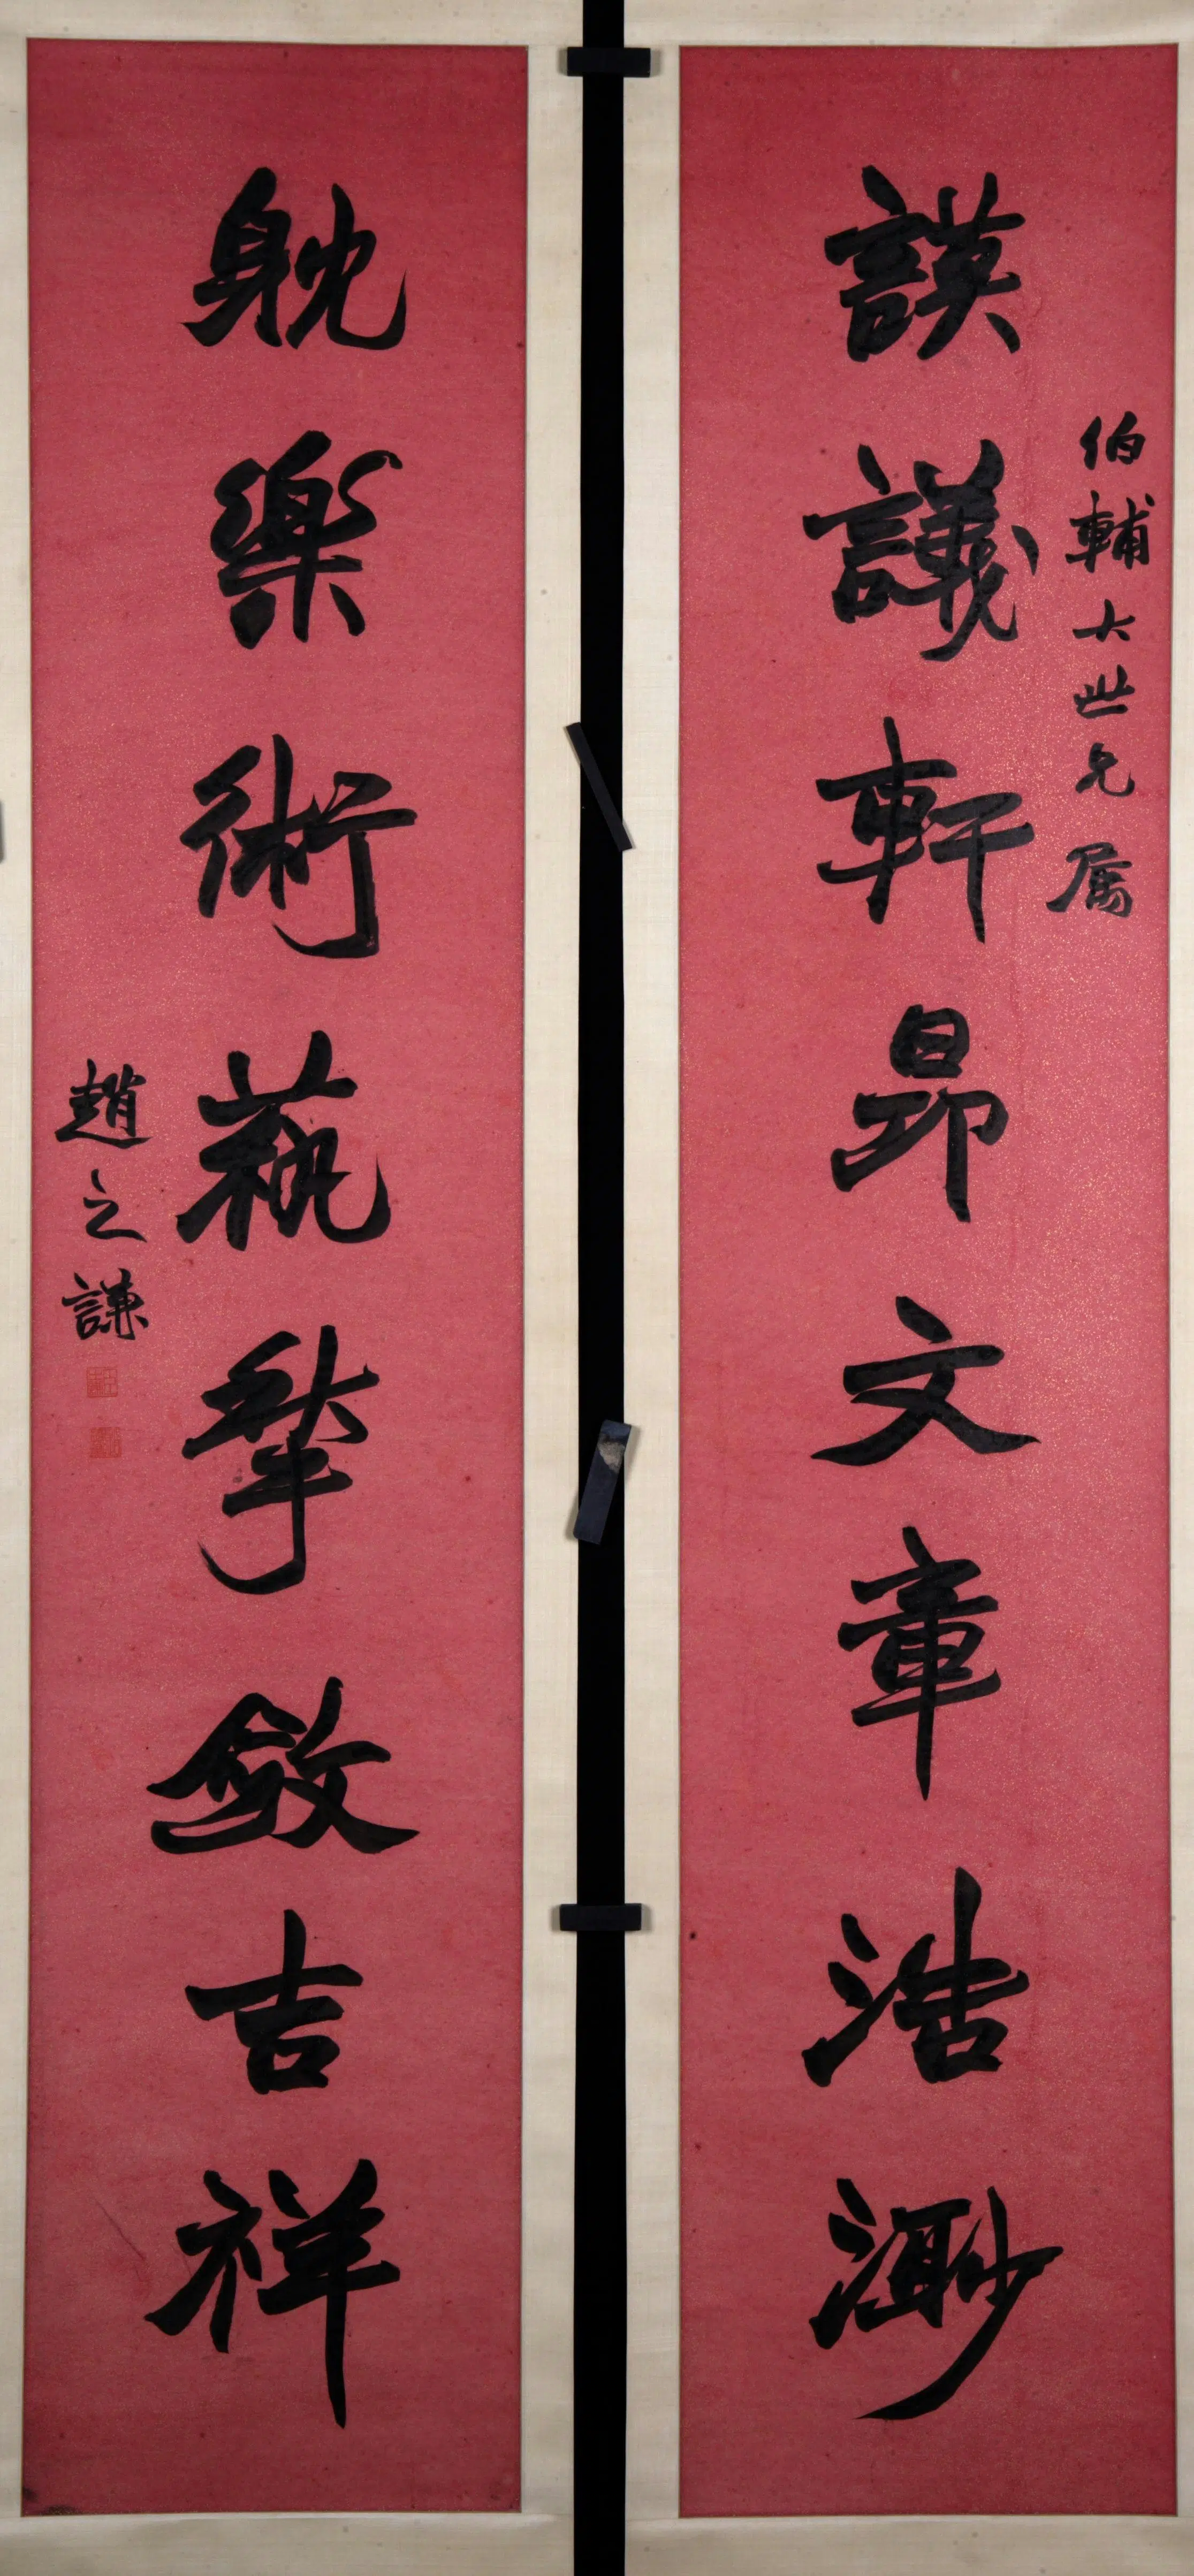 謨議軒昂文章浩渺
伯輔大世兄属
躭樂術蓺揫斂吉祥
趙之謙